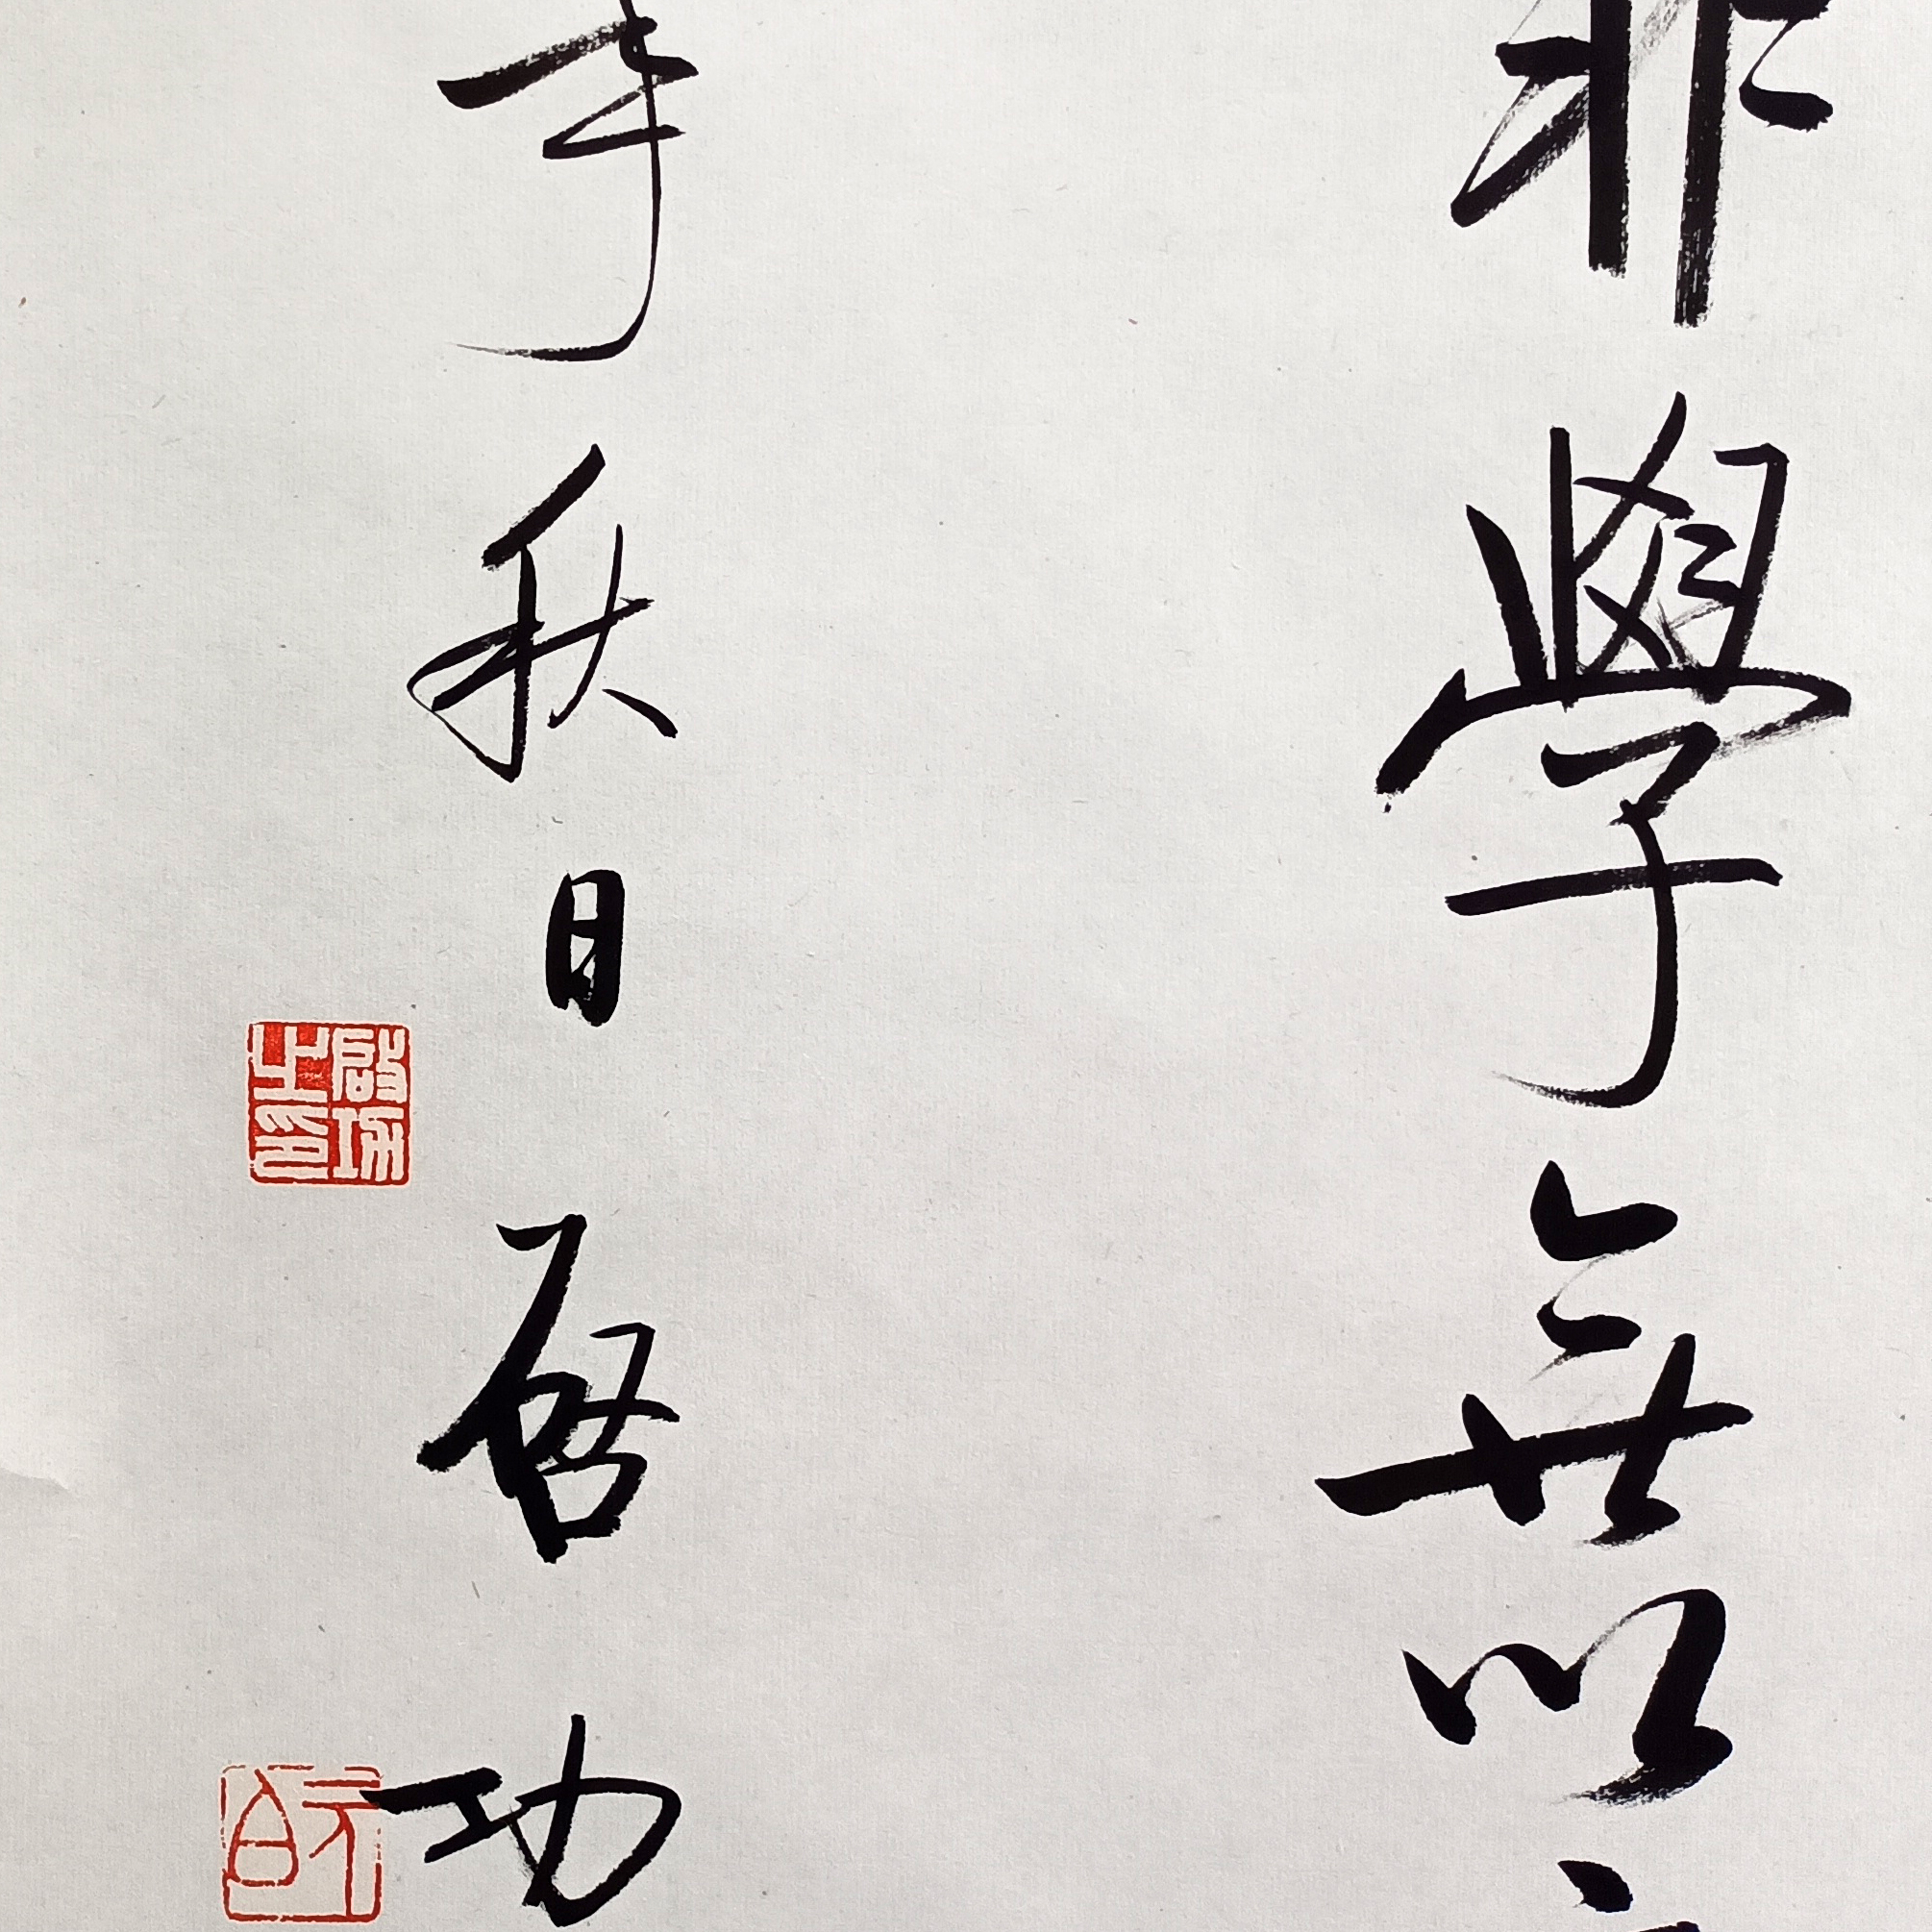 非學無以
秋日啟功
啟功之印
元白